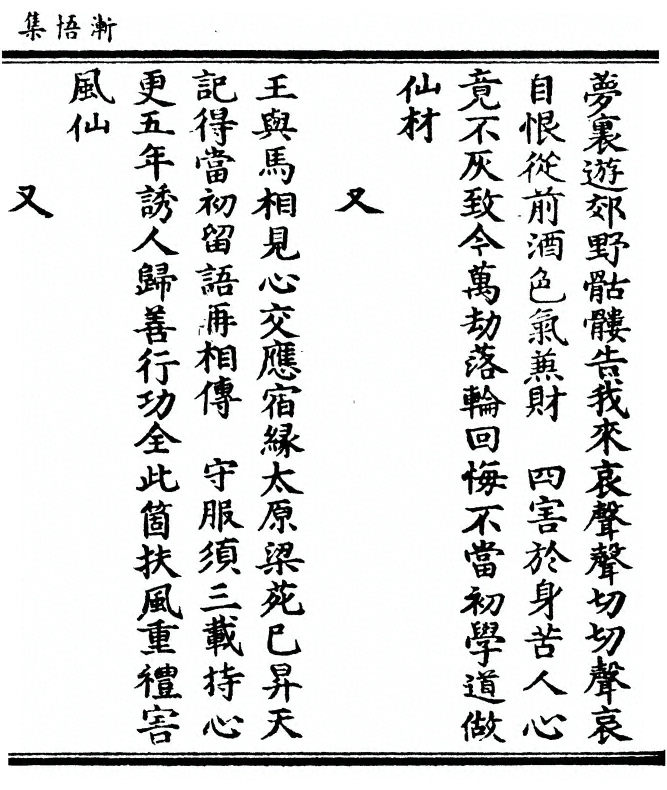 漸悟集
夢裏遊郊野骷髏告我來哀聲聲切切聲哀
自恨從前酒色氣𠔥財　四害於身苦人心
竟不灰致今萬劫落輪回悔不當初學道做
仙材
又
王與馬相見心交應宿緣太原梁苑已昇天
記得當初留語再相傳　守服須三載持心
更五年誘人歸善行功全此箇扶風重禮害
風仙
又